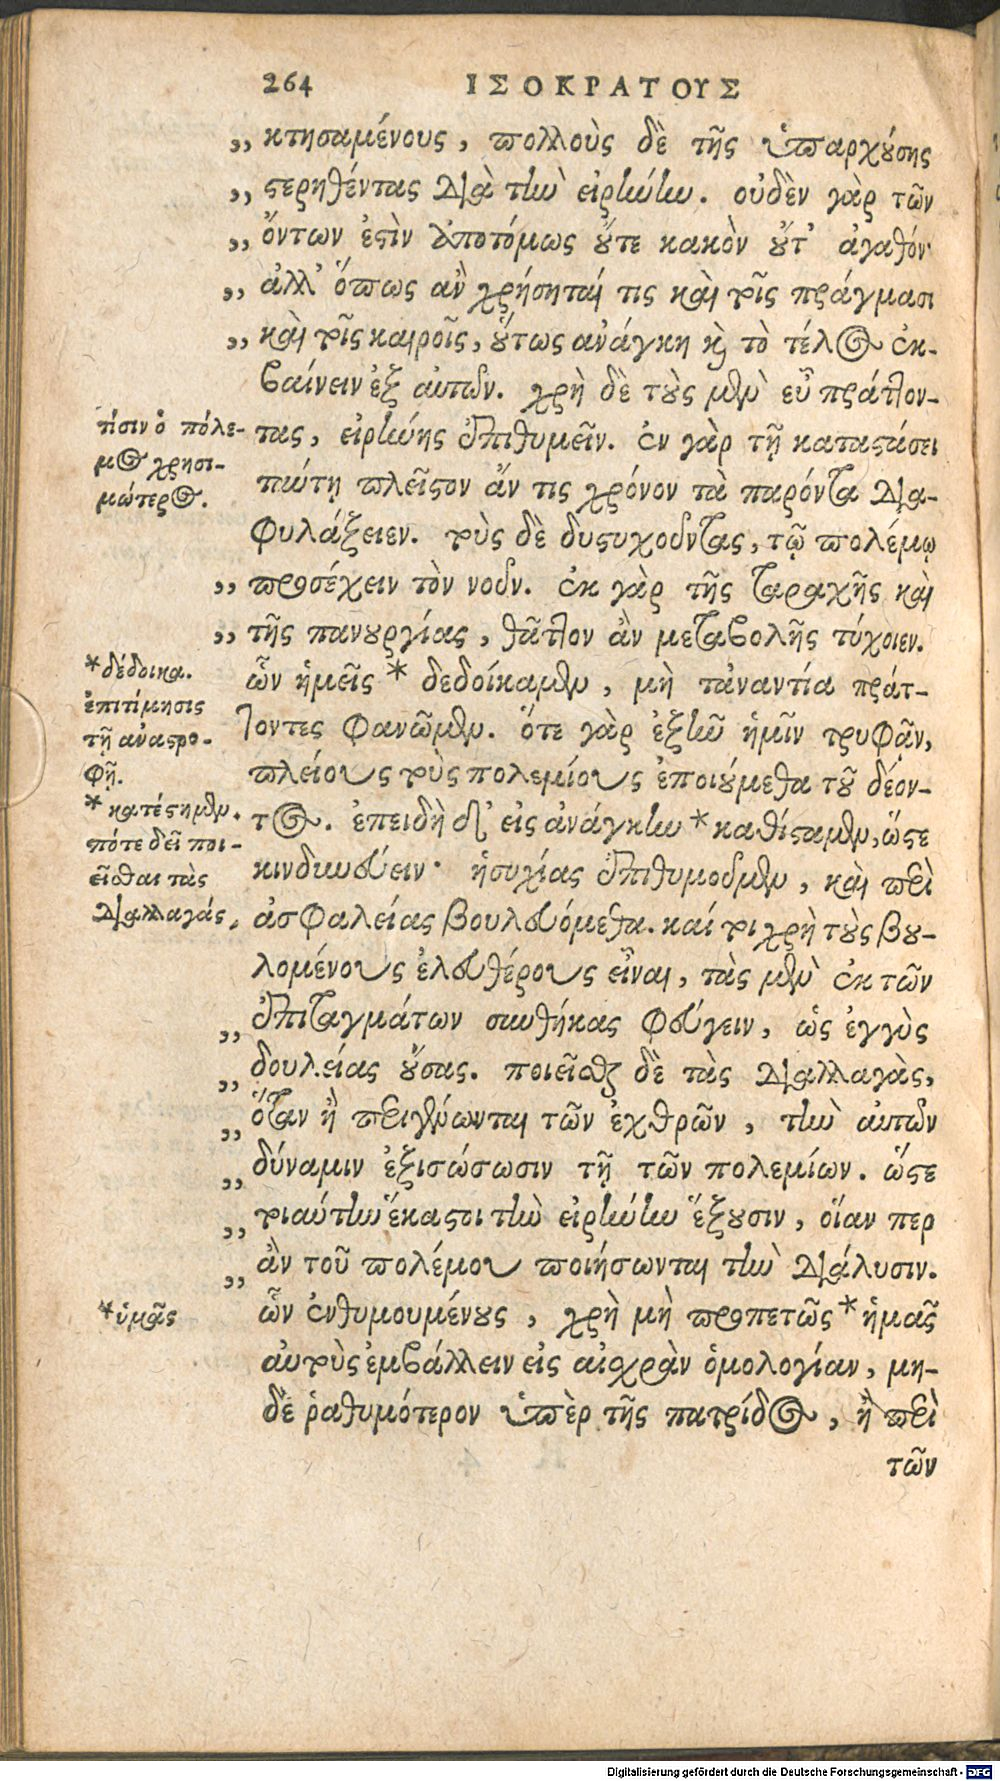 264 ΙΣΟΚΡΑΤΟΥΣ
„ κτησαμένους, πολλοὺς δὲ τῆς ὑπαρχούσης
„ στερηθέντας διὰ τὴν εἰρήνην. οὐδὲν γὰρ τῶν
„ ὄντων ἐστὶν ἀποτόμως οὔτε κακὸν οὔτ' ἀγαθόν·
„ ἀλλ' ὅπως ἂν χρήσηταί τις καὶ τοῖς πράγμασι
„ καὶ τοῖς καιροῖς, οὕτως ἀνάγκη καὶ τὸ τέλος ἐκ-
βαίνειν ἐξ αὐτῶν. χρὴ δὲ τοὺς μὲν εὖ πράττον-
τας, εἰρήνης ἐπιθυμεῖν. ἐν γὰρ τῇ καταστάσει
ταύτῃ πλεῖστον ἄν τις χρόνον τὰ παρόντα δια-
φυλάξειεν. τοὺς δὲ δυστυχοῦντας, τῷ πολέμῳ
„ προσέχειν τὸν νοῦν. ἐκ γὰρ τῆς ταραχῆς καὶ
„ τῆς πανουργίας, θᾶττον ἂν μεταβολῆς τύχοιεν.
ὧν ἡμεῖς * δεδοίκαμεν, μὴ τἀναντία πράτ-
τοντες φανῶμεν. ὅτε γὰρ ἐξῆν ἡμῖν τρυφᾶν,
πλείους τοὺς πολεμίους ἐποιούμεθα τοῦ δέον-
τος. ἐπειδὴ δ' εἰς ἀνάγκην * καθίσταμεν, ὥστε
κινδυνεύειν· ἡσυχίας ἐπιθυμοῦμεν, καὶ περὶ
ἀσφαλείας βουλευόμεθα. καί τοι χρὴ τοὺς βου-
λομένους ἐλευθέρους εἶναι, τὰς μὲν ἐκ τῶν
„ ἐπιταγμάτων συνθήκας φεύγειν, ὡς ἐγγὺς
„ δουλείας οὔσας. ποιεῖσθαι δὲ τὰς διαλλαγὰς,
„ ὅταν ἢ περιγένωνται τῶν ἐχθρῶν, τὴν αὐτῶν
„ δύναμιν ἐξισώσωσιν τῇ τῶν πολεμίων. ὥστε
„ τοιαύτην ἕκαστοι τὴν εἰρήνην ἕξουσιν, οἵαν περ
„ ἂν τοῦ πολέμου ποιήσωνται τὴν διάλυσιν.
ὧν ἐνθυμουμένους, χρὴ μὴ προπετῶς * ἡμᾶς
αὐτοὺς ἐμβάλλειν εἰς αἰσχρὰν ὁμολογίαν, μη-
δὲ ῥαθυμότερον ὑπὲρ τῆς πατρίδος, ἢ περὶ
τῶν
τίσιν ὁ πόλε-
μος χρησι-
μώτερος.
* δέδοικα.
ἐπιτίμησις
τῇ ἀναστρο-
φῇ.
* κατέστημεν.
πότε δεῖ ποι-
εῖσθαι τὰς
διαλλαγάς,
* ὑμᾶς
Digitalisierung gefördert durch die Deutsche Forschungsgemeinschaft - DFG